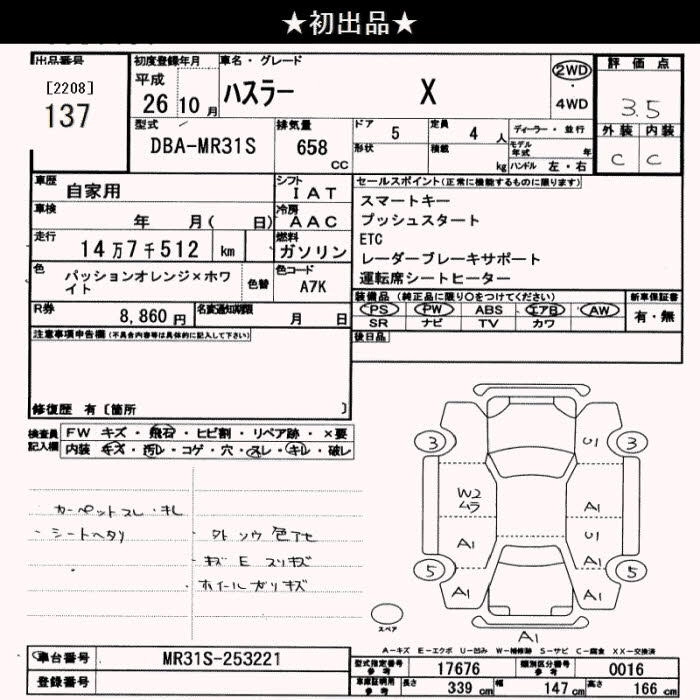 ★初出品★
出品番号
[2208]
137
初度登録年月
平成
26年10月
車名・グレード
ハスラー X
2WD
4WD
評価点
3.5
外装 内装
C C
型式
DBA-MR31S
排気量
658
CC
ドア 5
形状
定員 4 人
積載 kg
ディーラー・並行
モデル年式 年
ハンドル 左・右
車歴 自家用
シフト IAT
車検 年 月( 日)
冷房 AAC
走行 14万7千512 km
燃料 ガソリン
色 パッションオレンジ×ホワイト
色替
色コード A7K
R券 8,860円
名変通知期限 月 日
セールスポイント(正常に機能するものに限ります)
スマートキー
プッシュスタート
ETC
レーダーブレーキサポート
運転席シートヒーター
装備品 (純正品に限り○をつけてください)
新車保証書
PS PW ABS エアB AW
SR ナビ TV カワ
有・無
後日品
注意事項申告欄(不具合内容等は具体的に記入して下さい)
修復歴 有〔箇所 〕
検査員記入欄
FW キズ・飛石・ヒビ割・リペア跡・×要
内装 キズ・汚レ・コゲ・穴・スレ・キレ・破レ
カーペットスレ・キレ
・シートヘタリ
・外ソウ色アセ
キズ E スリキズ
ホイールガリキズ
3
U1
3
W2
ムラ
A1
A1
U1
A1
5
A1
5
スペア
A1
A-キズ E-エクボ U-凹み W-補修跡 S-サビ C-腐食 XX-交換済
車台番号 MR31S-253221
登録番号
型式指定番号参考 17676
類別区分番号参考 0016
車庫証明用参考 長さ 339 cm 幅 147 cm 高さ 166 cm